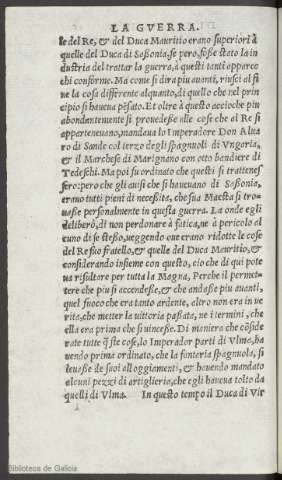 LA GVERRA.
le del Re, & del Duca Mauritio erano superiori à
quelle del Duca di Sassonia, se però, fosse stato la in
dustria del trattar la guerra, à questi tanti apparec
chi conforme. Ma come si dira piu auanti, riusci al fi
ne la cosa differēte alquanto, di quello che nel prin
cipio si haueua pēsato. Et oltre à questo accioche piu
abondantemente si prouedesse alle cose che al Re si
apparteneuano, mandaua lo Imperadore Don Alua
ro di Sande col terzo degli spagnuoli di Vngaria,
& il Marchese di Marignano con otto bandiere di
Tedeschi. Ma poi fu ordinato che questi si trattenes
sero: perche gli auisi che si haueuano di Sassonia,
erano tutti pieni di necessità, che sua Maesta si tro-
uasse personalmente in questa guerra. La onde egli
deliberò, di non perdonare à fatica, ne à pericolo al
cuno di se stesso, ueggendo oue erano ridotte le cose
del Re suo fratello, & quelle del Duca Mauritio, &
considerando insieme con questo, cio che di qui pote
ua risultare per tutta la Magna, Perche il permet-
tere che piu si accendesse, & che andasse piu auanti,
quel fuoco che era tanto ardente, altro non era in ue
rita, che metter la uittoria passata, ne i termini, che
ella era prima che si uincesse. Di maniera che cōside
rate tutte q̄ste cose, lo Imperador parti di Vlma, ha
uendo prima ordinato, che la fanteria spagnuola, si
leuasse de suoi alloggiamenti, & hauendo mandato
alcuni pezzi di artiglieria, che egli haueua tolto da
quelli di Vlma. In questo tempo il Duca di Vir
Biblioteca de Galicia